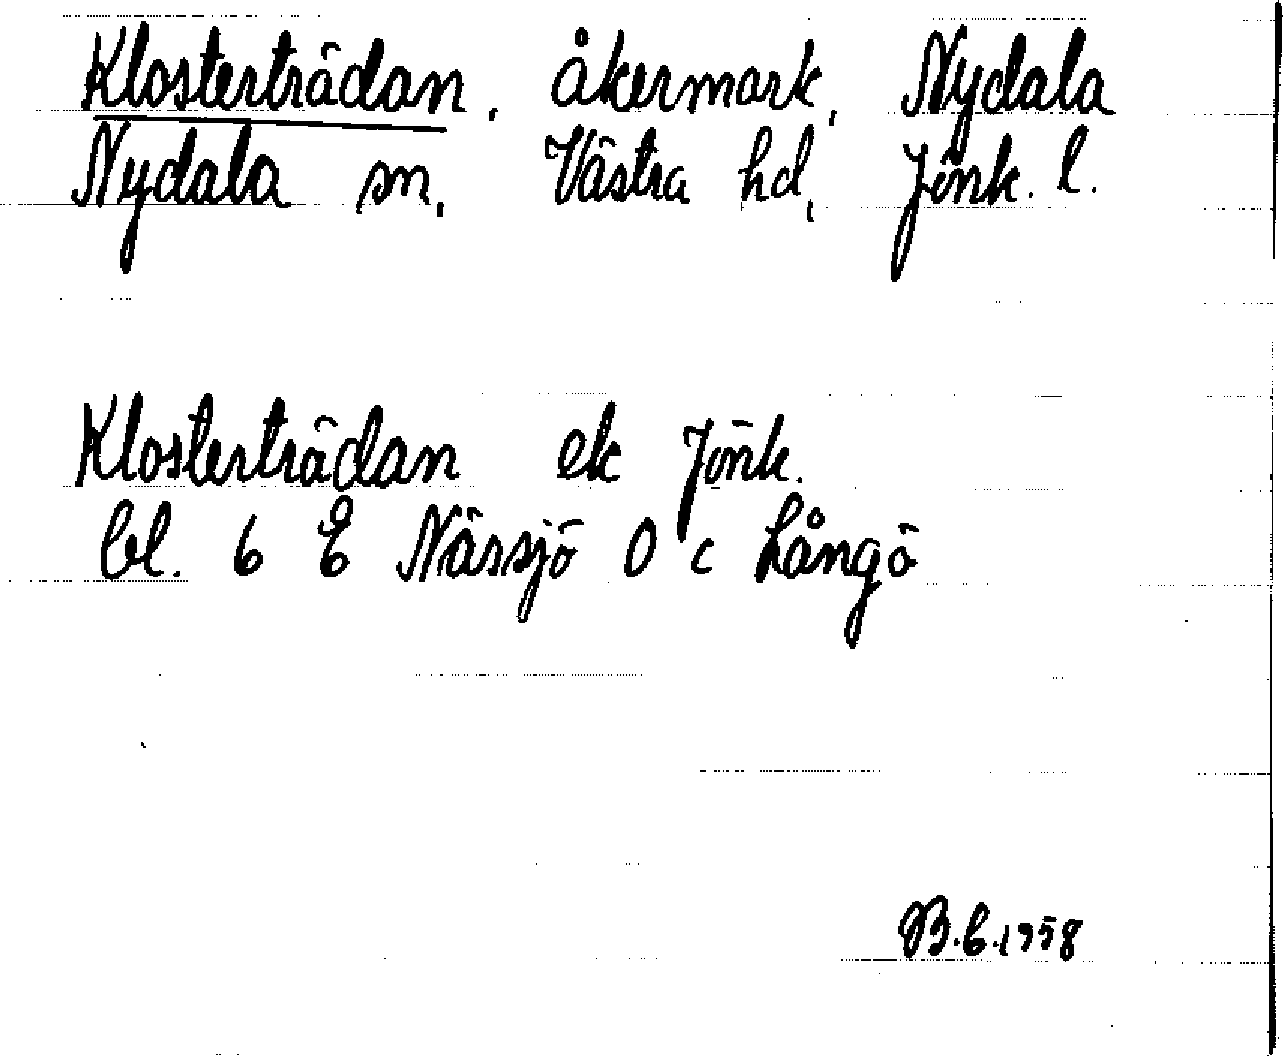 Klosterträdan, åkermark, Nydala
Nydala sn, Västra hd, Jönk. l.
Klosterträdan ek Jönk.
bl. 6 E Nässjö O c Långö
B.E.1958